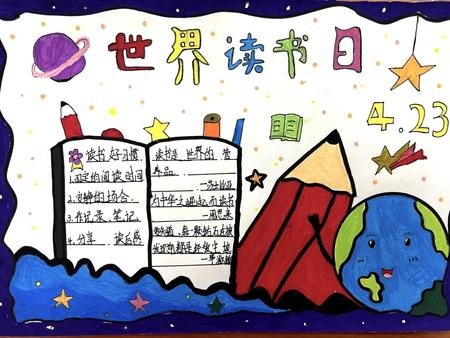 世界读书日
4.23
读书好习惯
1.固定的阅读时间
2.安静的场合.
3.作记录、笔记.
4.分享 读后感
读书是世界的营
养品.
—莎士比亚
为中华之崛起而读书
—周恩来